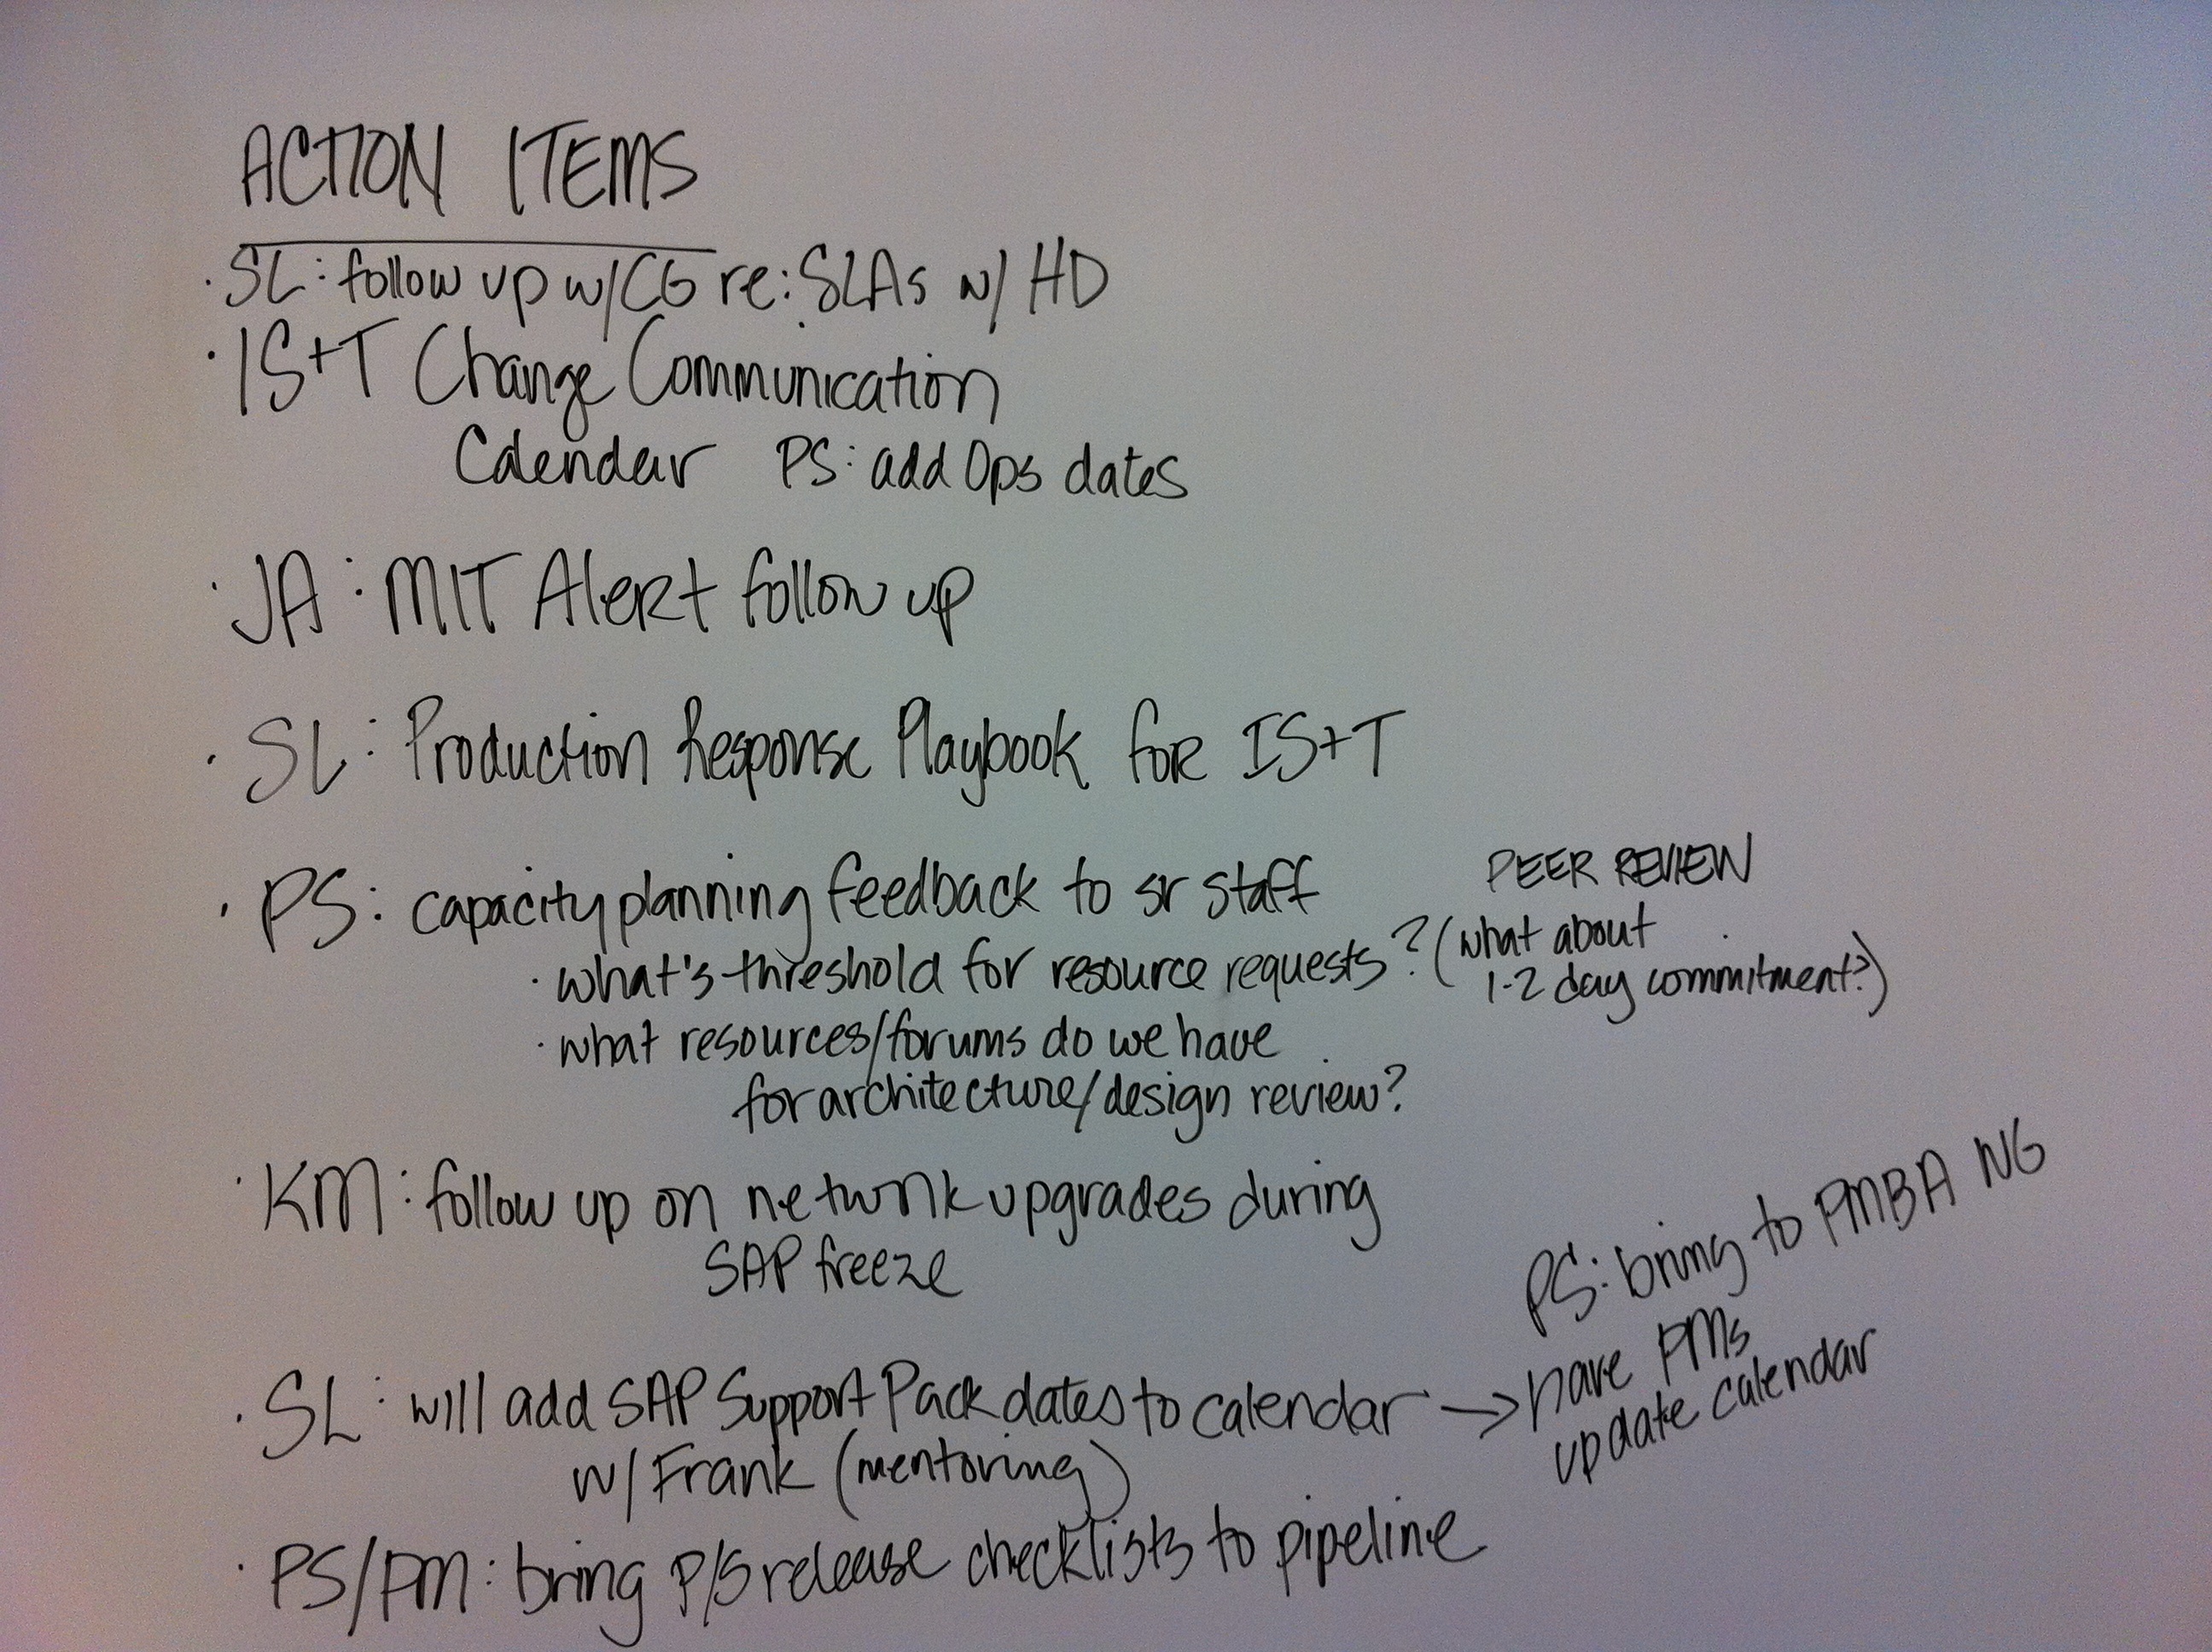 ACTION ITEMS
· SL: follow up w/CG re: SLAs w/ HD
· IS+T Change Communication
Calendar PS: add Ops dates
· JA: MIT Alert follow up
· SL: Production Response Playbook for IS+T
· PS: capacity planning feedback to sr staff
PEER REVIEW
· what's threshold for resource requests? (what about
1-2 day commitment?)
· what resources/forums do we have
for architecture/design review?
· KM: follow up on network upgrades during
SAP freeze
· SL: will add SAP Support Pack dates to calendar →
w/ Frank (mentoring)
PS: bring to PMBA NG
have PMs
update calendar
· PS/PM: bring P/S release checklists to pipeline